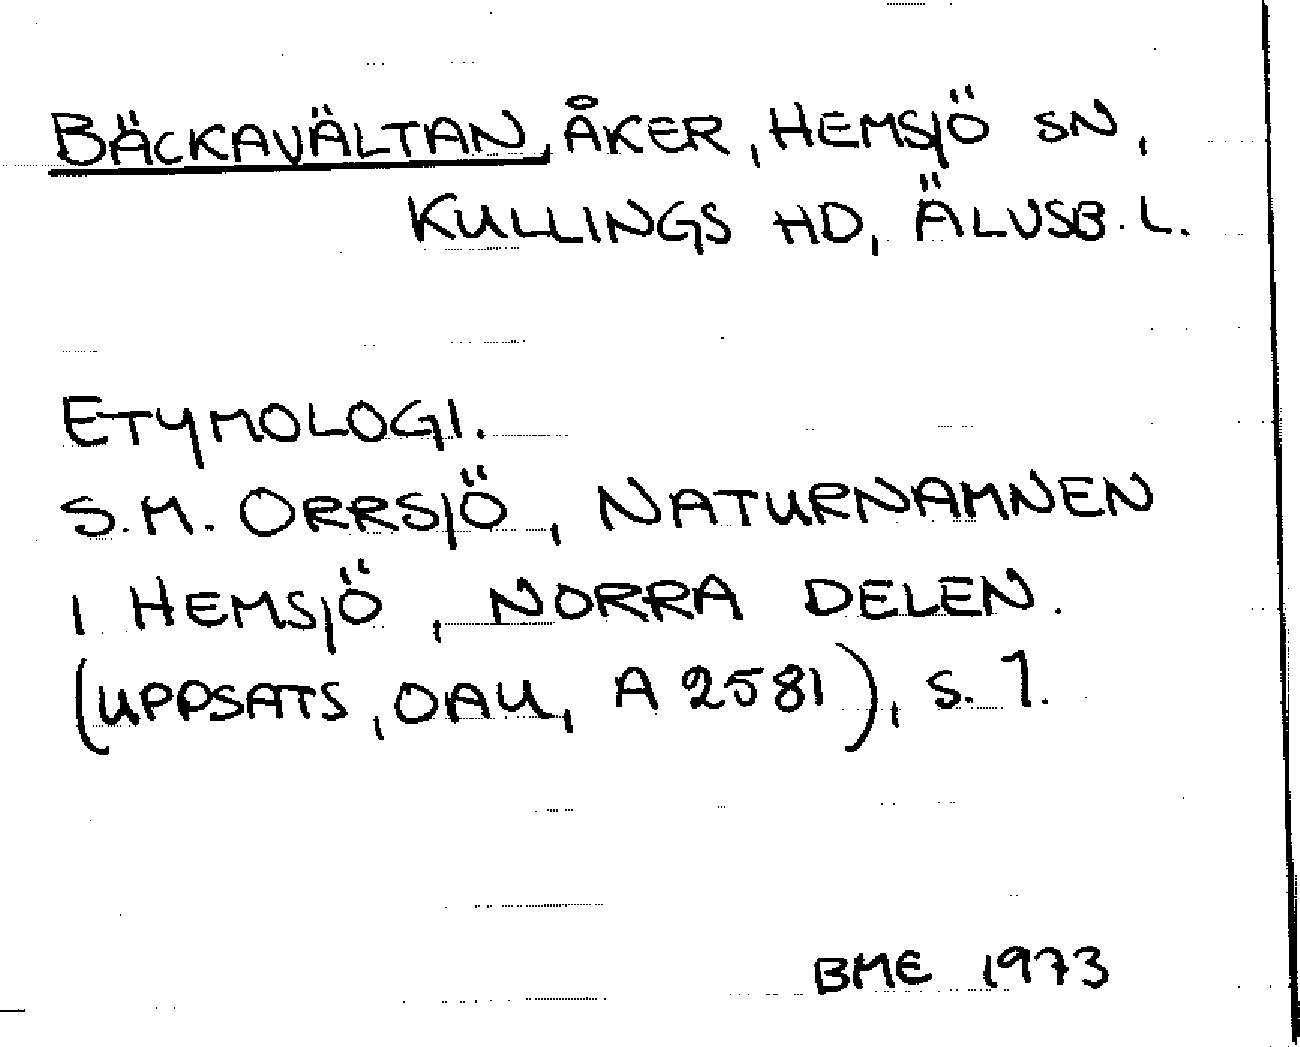 BÄCKAVÄLTAN, ÅKER, HEMSJÖ SN,
KULLINGS HD, ÄLVSB. L.
ETYMOLOGI.
S.M. ORRSJÖ, NATURNAMNEN
I HEMSJÖ, NORRA DELEN.
(UPPSATS, OAU, A 2581), S. 7.
BME 1973